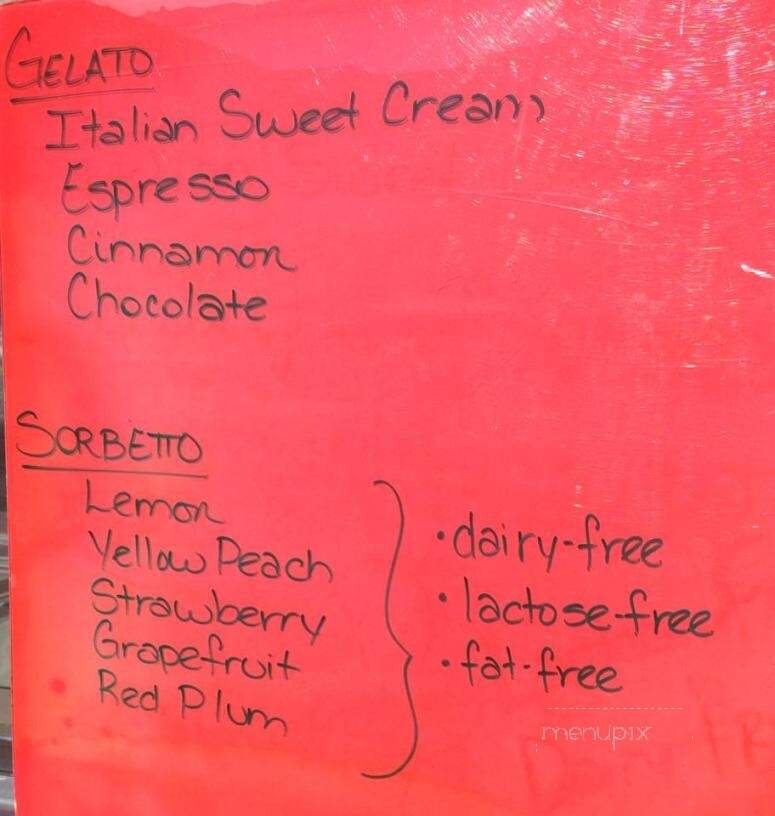 GELATO
Italian Sweet Cream
Espresso
Cinnamon
Chocolate
SORBETTO
Lemon
Yellow Peach
Strawberry
Grapefruit
Red Plum
• dairy-free
• lactose-free
• fat-free
menupix